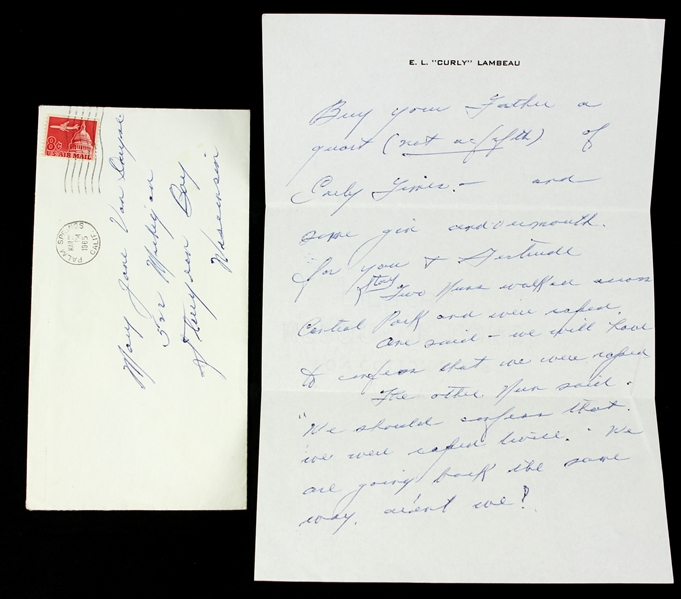 E. L. "CURLY" LAMBEAU
Buy your Father a
quart (not a fifth) of
Early Times - and
some gin and vermouth.
for you & Gertrude
Story
Two Nuns walked across
Central Park and were raped.
One said - we will have
to confess that we were raped
The other Nun said.
"We should confess that
we were raped twice." We
are going back the same
way, aren't we?
8¢
U.S. AIR MAIL
PALM SPRINGS
1965
CALIF.
Mary Jane Van
Sturgeon Bay
Wisconsin